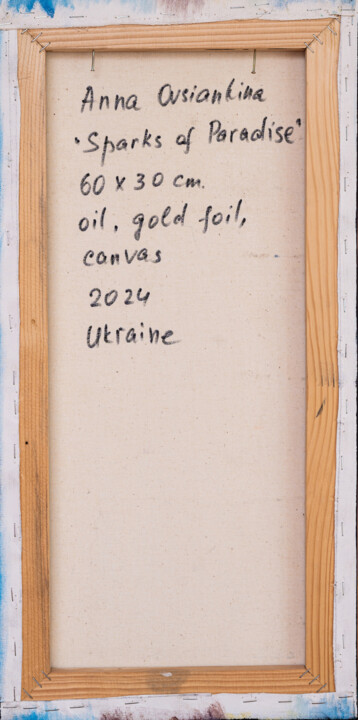 Anna Ovsiankina
"Sparks of Paradise"
60 x 30 cm.
oil, gold foil,
canvas
2024
Ukraine